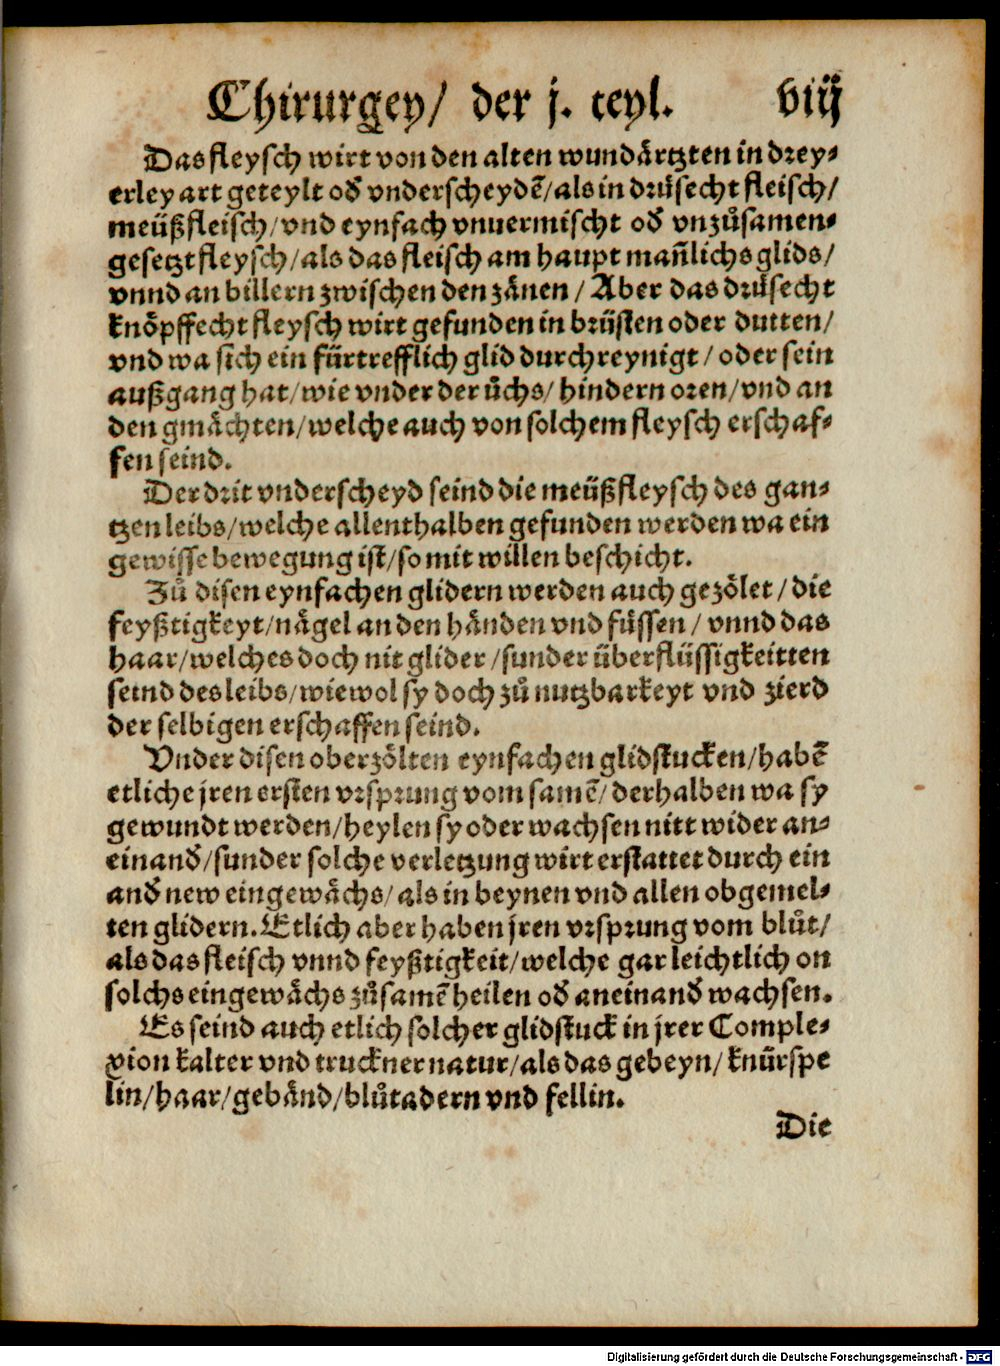 Chirurgey/ der j. teyl. viij
Das fleysch wirt von den alten wundårtzten in drey-
erley art geteylt od͛ vnderscheydẽ/als in drůsecht fleisch/
meüßfleisch/vnd eynfach vnuermischt od͛ vnzůsamen-
gesetzt fleysch/als das fleisch am haupt mañlichs glids/
vnnd an billern zwischen den zånen/ Aber das drůsecht
knöpffecht fleysch wirt gefunden in brüsten oder dutten/
vnd wa sich ein fürtrefflich glid durchreynigt/oder sein
außgang hat/wie vnder der üchs/ hindern oren/vnd an
den gmächten/welche auch von solchem fleysch erschaf-
fen seind.
Der drit vnderscheyd seind die meüßfleysch des gan-
tzen leibs/welche allenthalben gefunden werden wa ein
gewisse bewegung ist/so mit willen beschicht.
Zů disen eynfachen glidern werden auch gezölet/die
feyßtigkeyt/någel an den hånden vnd füssen/ vnnd das
haar/welches doch nit glider/sunder überflüssigkeitten
seind des leibs/wiewol sy doch zů nutzbarkeyt vnd zierd
der selbigen erschaffen seind.
Vnder disen oberzölten eynfachen glidstucken/habẽ
etliche jren ersten vrsprung vom samẽ/derhalben wa sy
gewundt werden/heylen sy oder wachsen nitt wider an-
einand͛/sunder solche verletzung wirt erstattet durch ein
and͛ new eingewåchs/als in beynen vnd allen obgemel-
ten glidern. Etlich aber haben jren vrsprung vom blůt/
als das fleisch vnnd feyßtigkeit/welche gar leichtlich on
solchs eingewåchs zůsamẽ heilen od͛ aneinand͛ wachsen.
Es seind auch etlich solcher glidstuck in jrer Comple-
xion kalter vnd truckner natur/als das gebeyn/ knürspe
lin/haar/gebånd/blůtadern vnd fellin.
Die
Digitalisierung gefördert durch die Deutsche Forschungsgemeinschaft - DFG